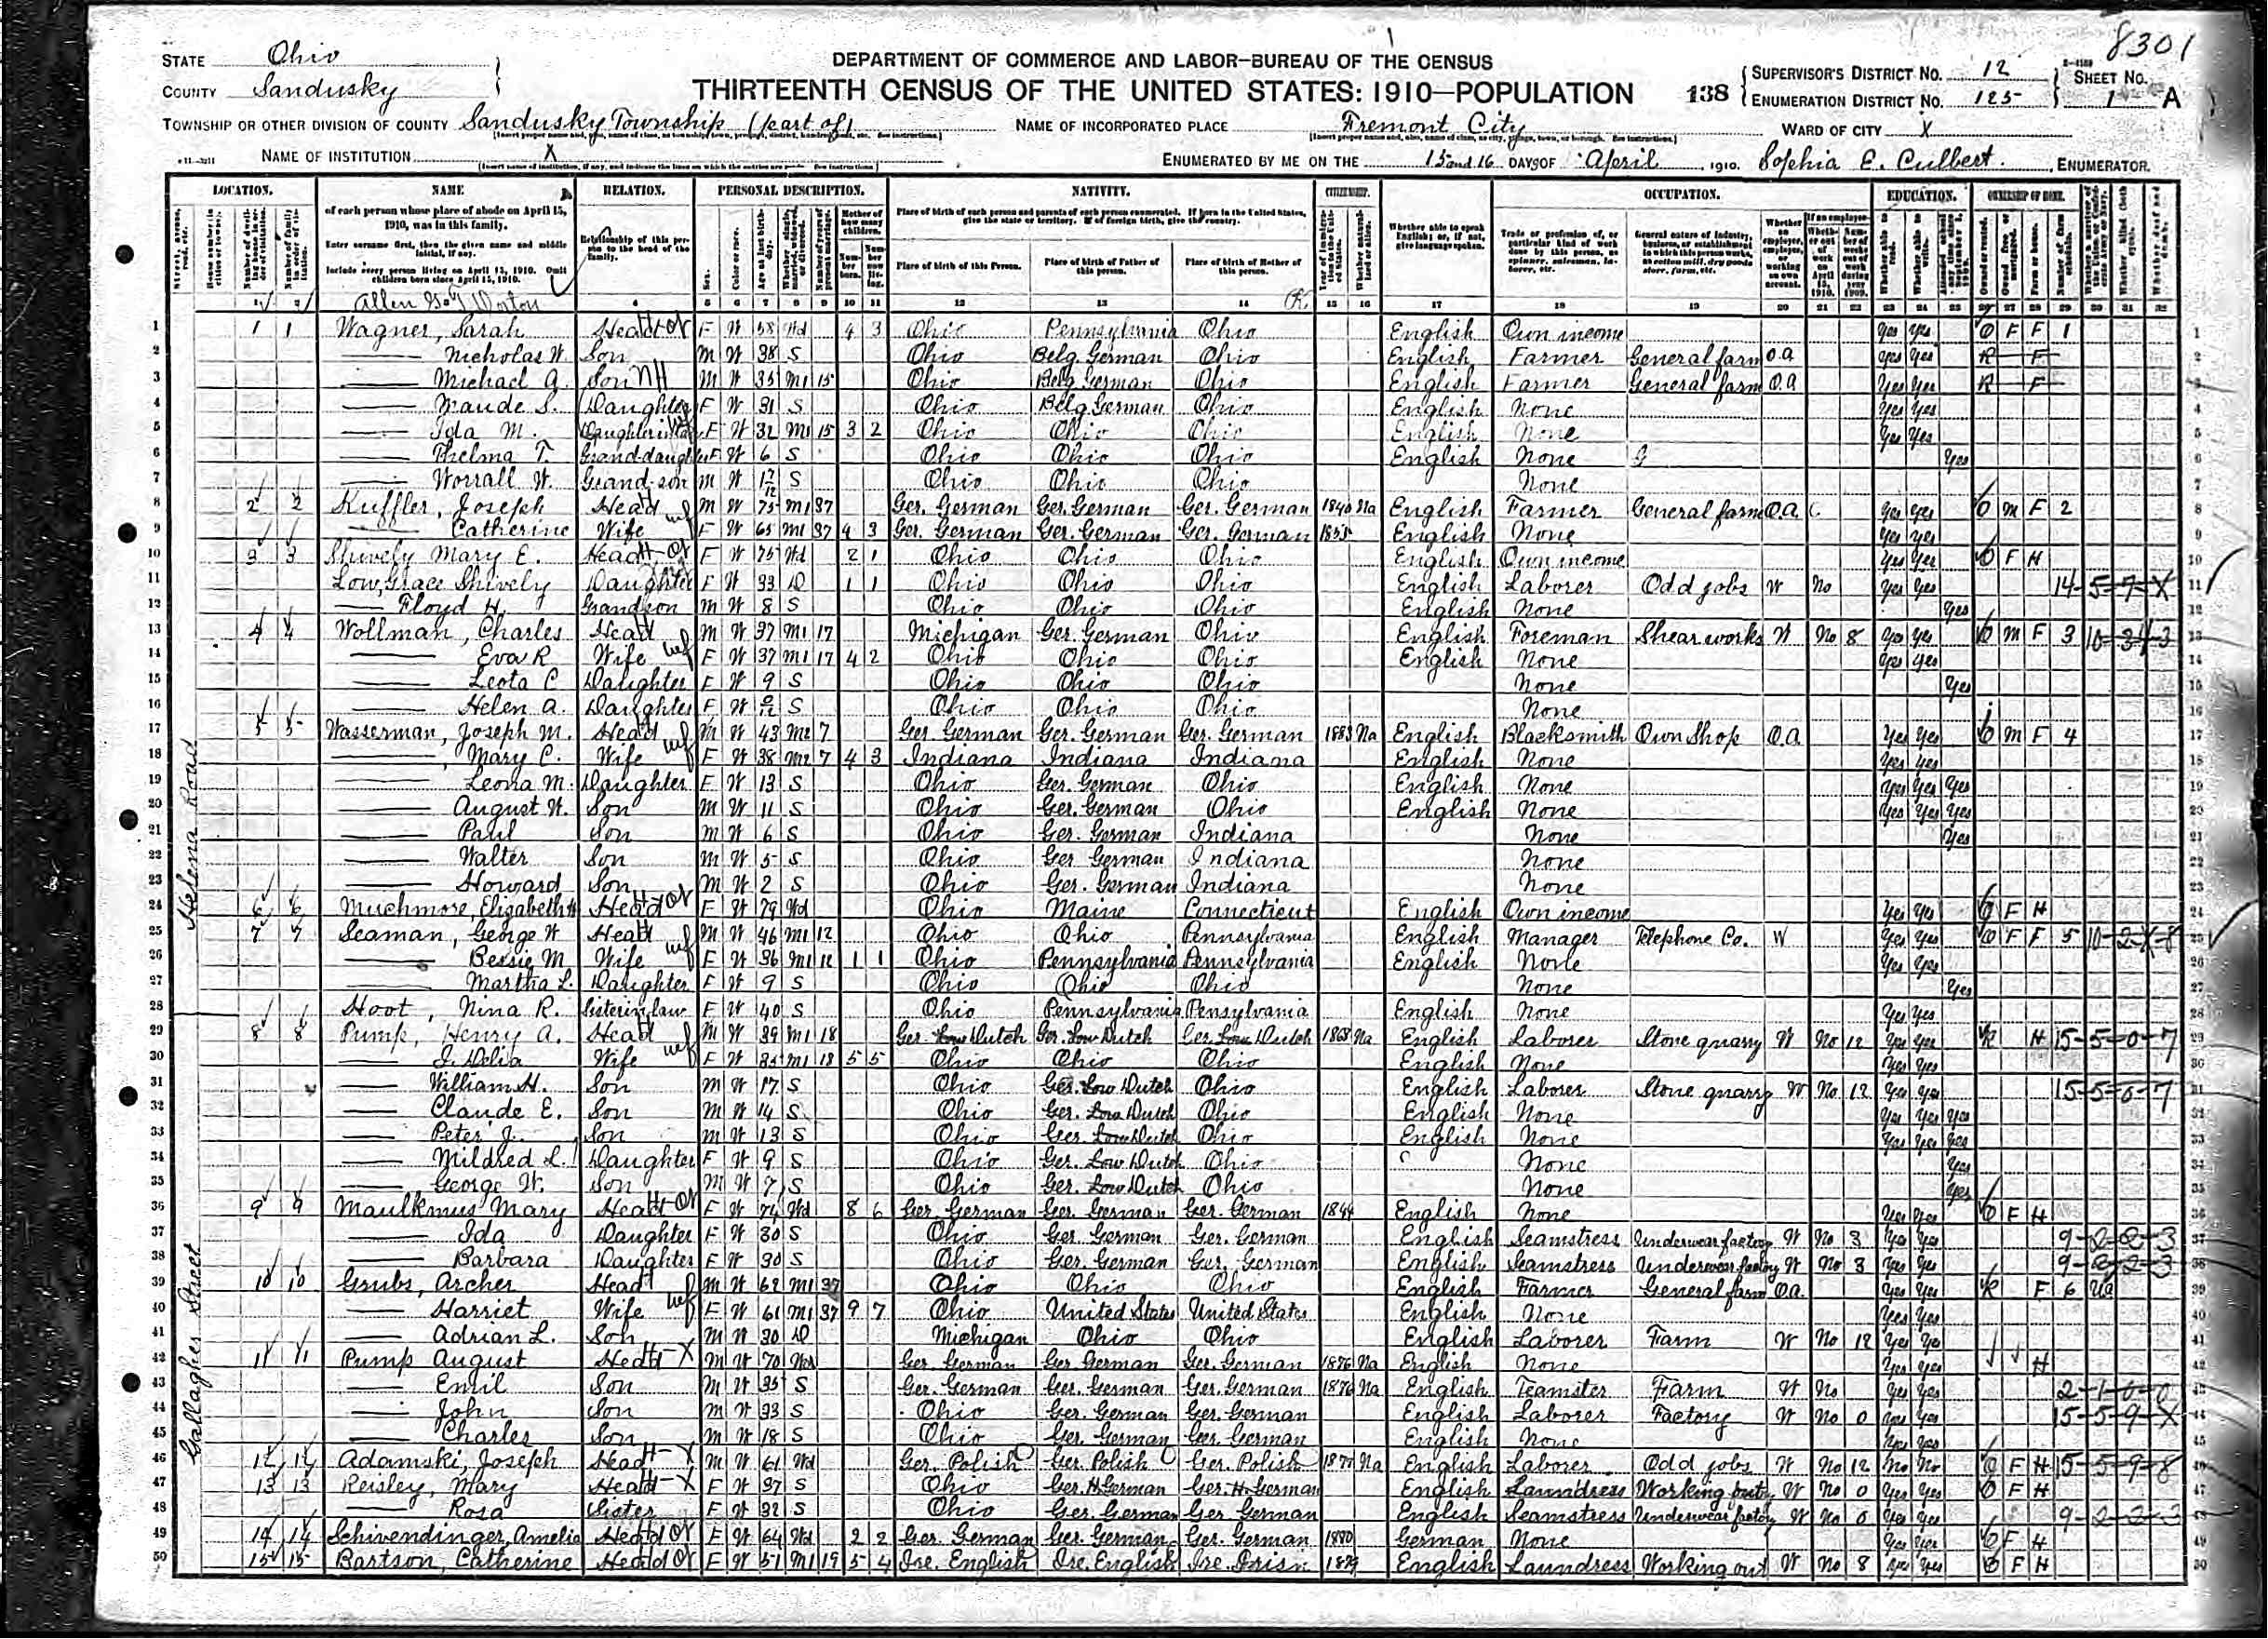 8301
STATE Ohio
COUNTY Sandusky
DEPARTMENT OF COMMERCE AND LABOR—BUREAU OF THE CENSUS
THIRTEENTH CENSUS OF THE UNITED STATES: 1910—POPULATION
138
SUPERVISOR'S DISTRICT No. 12
ENUMERATION DISTRICT No. 125
SHEET No. 1 A
TOWNSHIP OR OTHER DIVISION OF COUNTY Sandusky Township (part of)
NAME OF INCORPORATED PLACE Fremont City
WARD OF CITY X
NAME OF INSTITUTION X
ENUMERATED BY ME ON THE 15 and 16 DAYS OF April, 1910. Sophia E. Culbert, ENUMERATOR.
LOCATION. NAME RELATION. PERSONAL DESCRIPTION. NATIVITY. CITIZENSHIP. OCCUPATION. EDUCATION. OWNERSHIP OF HOME.
of each person whose place of abode on April 15, 1910, was in this family.
Enter surname first, then the given name and middle initial, if any.
Include every person living on April 15, 1910. Omit children born since April 15, 1910.
Relationship of this person to the head of the family.
Place of birth of this Person. Place of birth of Father of this person. Place of birth of Mother of this person.
Helena Road
Gallagher Street
1 1 1 Wagner, Sarah Head F W 58 Wd 4 3 Ohio Pennsylvania Ohio English Own income Yes Yes O F F 1
2 Nicholas W. Son M W 38 S Ohio Belg. German Ohio English Farmer General farm O.A. Yes Yes R F
3 Michael A. Son M W 35 M1 15 Ohio Belg. German Ohio English Farmer General farm O.A. Yes Yes R F
4 Maude S. Daughter F W 31 S Ohio Belg. German Ohio English None Yes Yes
5 Ida M. Daughter in law F W 32 M1 15 3 2 Ohio Ohio Ohio English None Yes Yes
6 Thelma T. Granddaughter F W 6 S Ohio Ohio Ohio English None Yes
7 Worrall W. Grandson M W S Ohio Ohio Ohio None
8 2 2 Kuffler, Joseph Head M W 75 M1 37 Ger. German Ger. German Ger. German 1840 Na English Farmer General farm O.A. Yes Yes O M F 2
9 Catherine Wife F W 65 M1 37 4 3 Ger. German Ger. German Ger. German 1855 English None Yes Yes
10 3 3 Shively Mary E. Head F W 75 Wd 2 1 Ohio Ohio Ohio English Own income Yes Yes O F H
11 Low, Grace Shively Daughter F W 33 D 1 1 Ohio Ohio Ohio English Laborer Odd jobs W No Yes Yes 14-5-7-X
12 Floyd H. Grandson M W 8 S Ohio Ohio Ohio English None Yes
13 4 4 Wollman, Charles Head M W 37 M1 17 Michigan Ger. German Ohio English Foreman Shear works W No 8 Yes Yes O M F 3
14 Eva R Wife F W 37 M1 17 4 2 Ohio Ohio Ohio English None Yes Yes
15 Leota C Daughter F W 9 S Ohio Ohio Ohio None Yes
16 Helen A. Daughter F W S Ohio Ohio Ohio None
17 5 5 Wasserman, Joseph M. Head M W 43 M2 7 Ger. German Ger. German Ger. German 1883 Na English Blacksmith Own Shop O.A. Yes Yes O M F 4
18 Mary C. Wife F W 38 M2 7 4 3 Indiana Indiana Indiana English None Yes Yes
19 Leona M. Daughter F W 13 S Ohio Ger. German Ohio English None Yes Yes Yes
20 August W. Son M W 11 S Ohio Ger. German Ohio English None Yes Yes Yes
21 Paul Son M W 6 S Ohio Ger. German Indiana None Yes
22 Walter Son M W 5 S Ohio Ger German Indiana None
23 Howard Son M W 2 S Ohio Ger. German Indiana None
24 6 6 Muchmore, Elizabeth Head F W 79 Wd Ohio Maine Connecticut English Own income Yes Yes O F H
25 7 7 Seaman, George W Head M W 46 M1 12 Ohio Ohio Pennsylvania English Manager Telephone Co. W Yes Yes O F F 5
26 Bessie M Wife F W 36 M1 12 1 1 Ohio Pennsylvania Pennsylvania English None Yes Yes
27 Martha L. Daughter F W 9 S Ohio Ohio Ohio None Yes
28 Hoot, Nina R. Sister in law F W 40 S Ohio Pennsylvania Pensylvania English None Yes Yes
29 8 8 Pump, Henry A. Head M W 39 M1 18 Ger. Low Dutch Ger. Low Dutch Ger. Low Dutch 1868 Na English Laborer Stone quarry W No 12 Yes Yes R H 15-5-0-7
30 J. Delia Wife F W 35 M1 18 5 5 Ohio Ohio Ohio English None Yes Yes
31 William H. Son M W 17 S Ohio Ger. Low Dutch Ohio English Laborer Stone quarry W No 12 Yes Yes 15-5-0-7
32 Claude E. Son M W 14 S Ohio Ger. Low Dutch Ohio English None Yes Yes Yes
33 Peter J. Son M W 13 S Ohio Ger. Low Dutch Ohio English None Yes Yes Yes
34 Mildred L. Daughter F W 9 S Ohio Ger. Low Dutch Ohio None Yes
35 George W. Son M W 7 S Ohio Ger. Low Dutch Ohio None Yes
36 9 9 Maulkmus Mary Head F W 74 Wd 8 6 Ger. German Ger. German Ger. German 1844 English None Yes Yes O F H
37 Ida Daughter F W 30 S Ohio Ger. German Ger. German English Seamstress Underwear factory W No 3 Yes Yes 9-2-2-3
38 Barbara Daughter F W 30 S Ohio Ger. German Ger. German English Seamstress Underwear factory W No 3 Yes Yes 9-2-2-3
39 10 10 Grubs, Archer Head M W 62 M1 37 Ohio Ohio Ohio English Farmer General farm O.A. Yes Yes R F 6
40 Harriet Wife F W 61 M1 37 9 7 Ohio United States United States English None Yes Yes
41 Adrian L. Son M W 30 D Michigan Ohio Ohio English Laborer Farm W No 12 Yes Yes
42 11 11 Pump August Head M W 70 Wd Ger. German Ger. German Ger. German 1876 Na English None Yes Yes H
43 Emil Son M W 35 S Ger. German Ger. German Ger. German 1876 Na English Teamster Farm W No Yes Yes
44 John Son M W 33 S Ohio Ger. German Ger. German English Laborer Factory W No 0 Yes Yes 15-5-9-X
45 Charles Son M W 18 S Ohio Ger. German Ger. German English None Yes Yes
46 12 12 Adamski, Joseph Head M W 61 Wd Ger. Polish Ger. Polish Ger. Polish Na English Laborer Odd jobs W No 12 No No O F H 15-5-9-8
47 13 13 Reisley, Mary Head F W 37 S Ohio Ger. H. German Ger. H. German English Laundress Working out W No 0 Yes Yes O F H
48 Rosa Sister F W 32 S Ohio Ger. German Ger German English Seamstress Underwear factory W No 0 Yes Yes 9-2-2-3
49 14 14 Schivendinger, Amelia Head F W 64 Wd 2 2 Ger. German Ger. German Ger. German 1880 German None Yes Yes O F H
50 15 15 Bartson, Catherine Head F W 51 M1 19 5 4 Ire. English Ire. English Ire. Irish 1879 English Laundress Working out W No 8 Yes Yes O F H